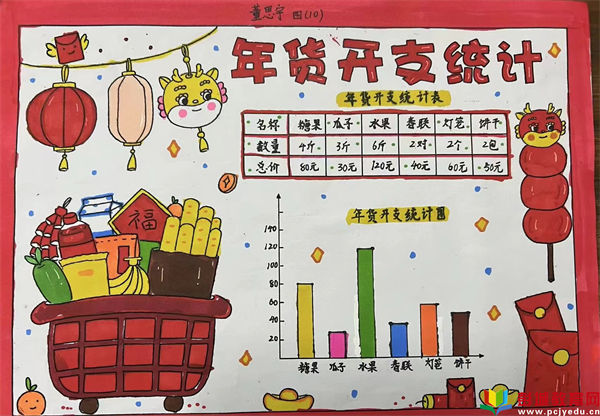 董思宇 四(10)
年货开支统计
年货开支统计表
名称 糖果 瓜子 水果 春联 灯笼 饼干
数量 4斤 3斤 6斤 2对 2个 2包
总价 80元 30元 120元 40元 60元 50元
福
年货开支统计图
140
120
100
80
60
40
20
糖果 瓜子 水果 春联 灯笼 饼干
www.pcjyedu.cn